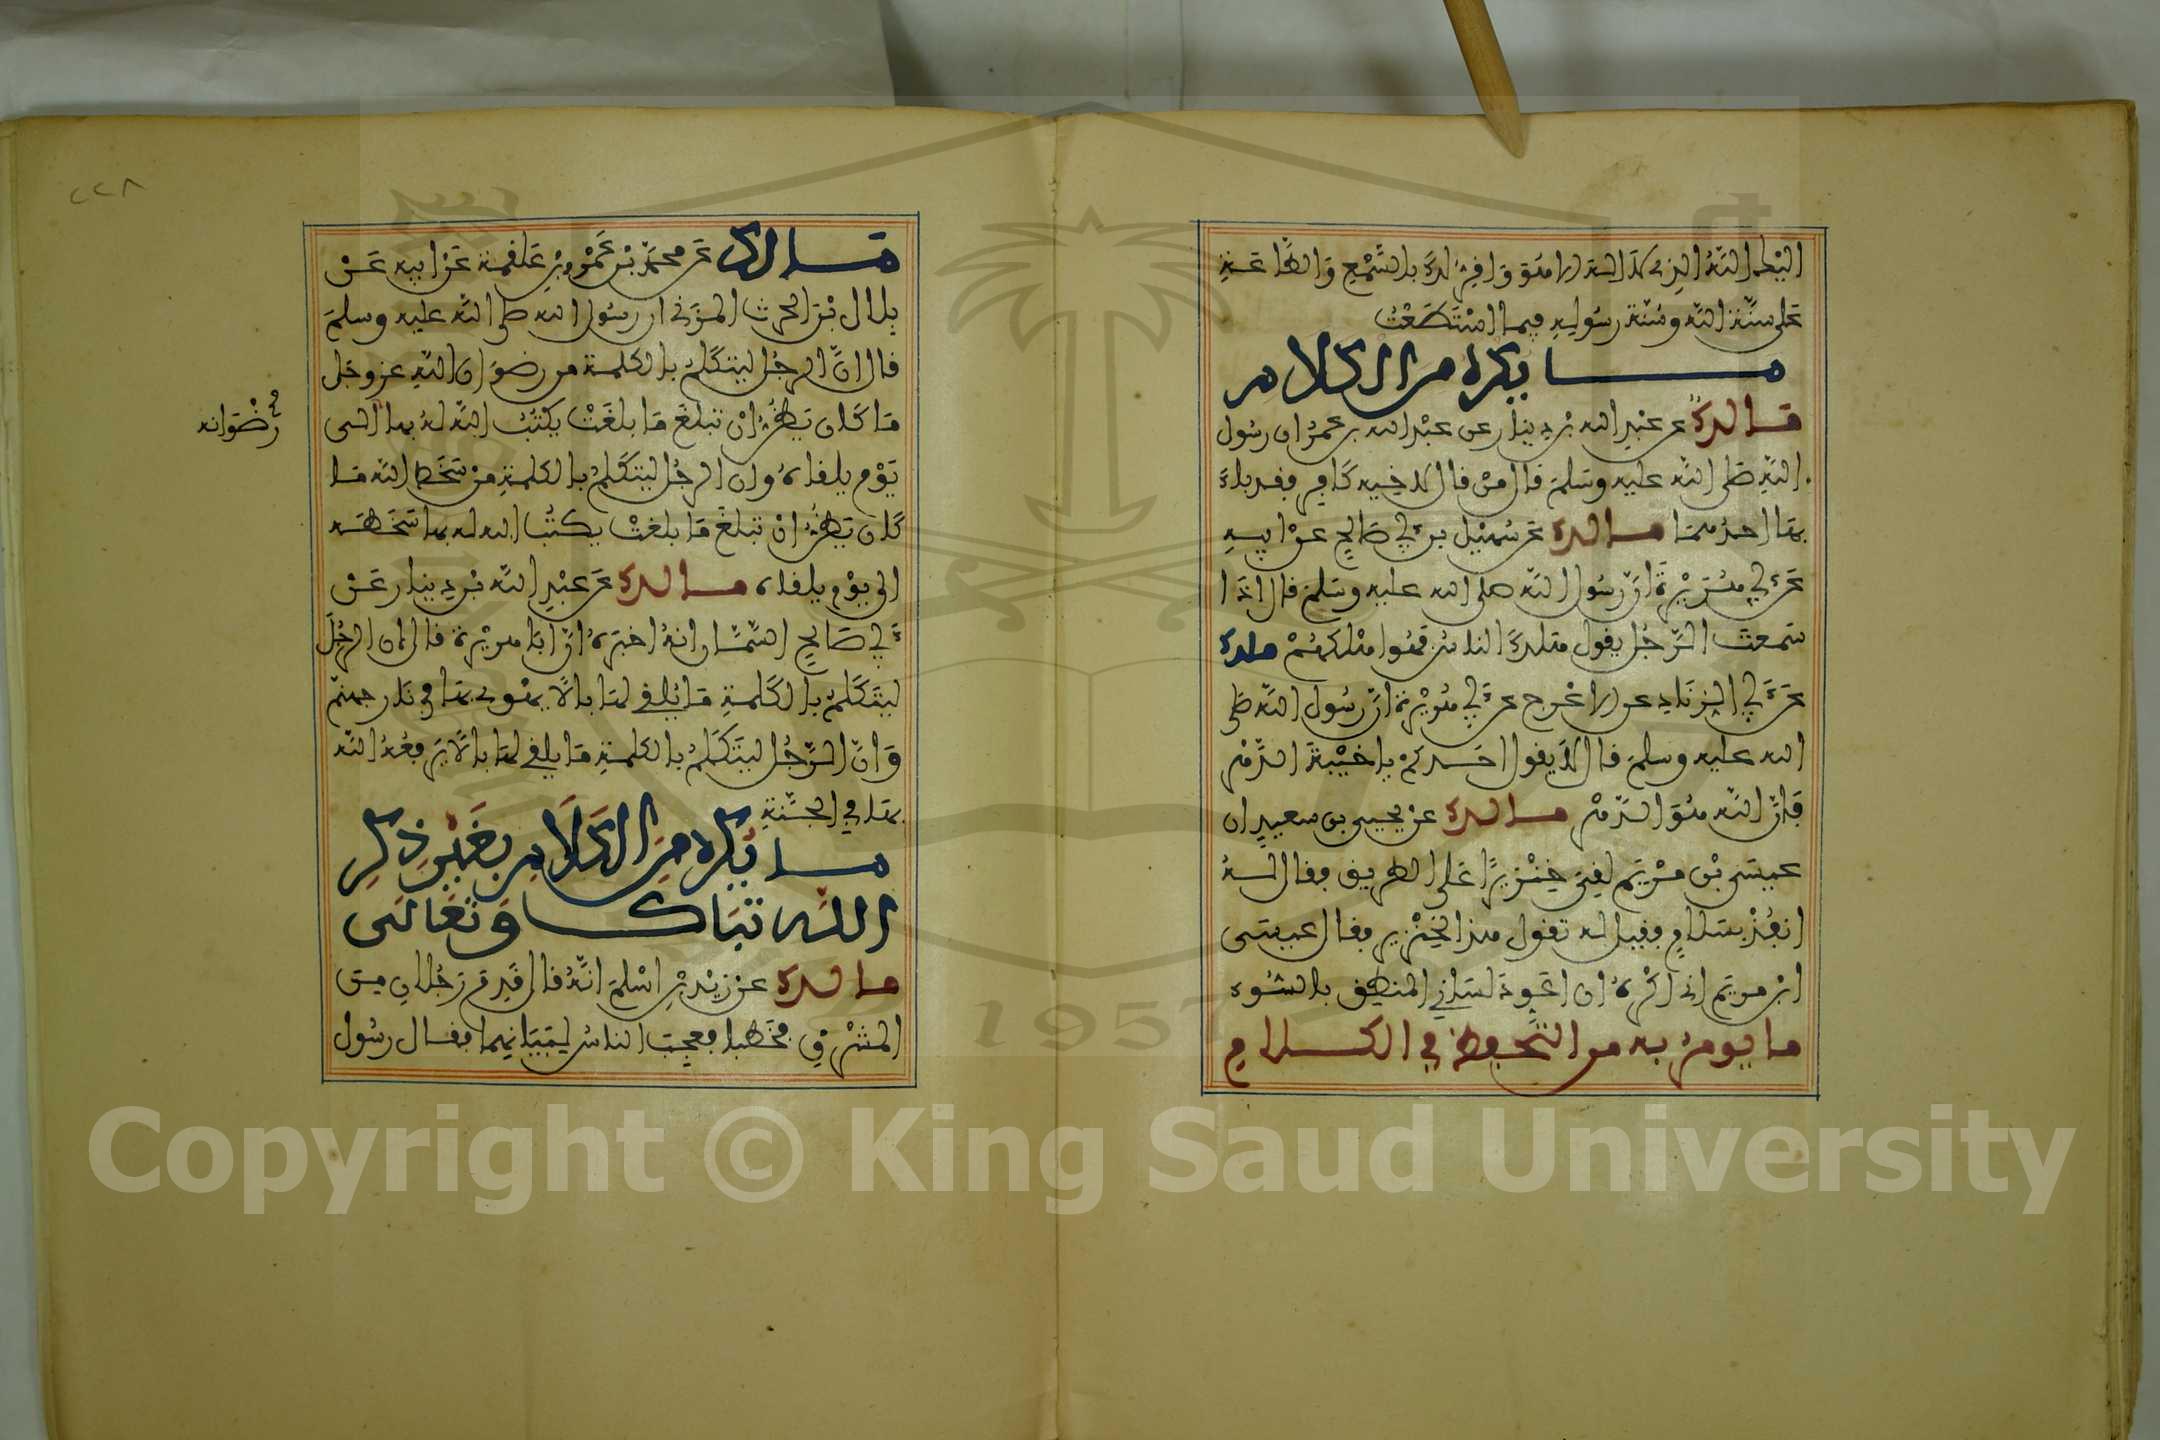 اليك الله الذي لا اله الا هو وافر لك بالسمع والطاعة
على سنة الله وسنة رسوله فيما استطعت
ما يكره من الكلام
مالك عن عبد الله بن دينار عن عبد الله بن عمر ان رسول
الله صلى الله عليه وسلم قال من قال لاخيه كافر فقد باء
بها احدهما مالك عن سهيل بن ابي صالح عن ابيه
عن ابي هريرة ان رسول الله صلى الله عليه وسلم قال اذا
سمعت الرجل يقول هلك الناس فهو اهلكهم مالك
عن ابي الزناد عن الاعرج عن ابي هريرة ان رسول الله صلى
الله عليه وسلم قال لا يقول احدكم يا خيبة الدهر
فان الله هو الدهر مالك عن يحيى بن سعيد ان
عيسى بن مريم لقي خنزيرا على الطريق فقال له
انفذ بسلام فقيل له تقول هذا لخنزير فقال عيسى
ابن مريم اني اكره ان اعود لساني المنطق بالسوء
ما يومر به من التحفظ في الكلام
مالك عن محمد بن عمرو بن علقمة عن ابيه عن
بلال بن الحرث المزني ان رسول الله صلى الله عليه وسلم
قال ان الرجل ليتكلم بالكلمة من رضوان الله عز وجل
ما كان يظن ان تبلغ ما بلغت يكتب الله له بها الى
رضوانه
يوم يلقاه وان الرجل ليتكلم بالكلمة من سخط الله ما
كان يظن ان تبلغ ما بلغت يكتب الله له بها سخطه
الى يوم يلقاه مالك عن عبد الله بن دينار عن
ابي صالح السمان انه اخبره ان ابا هريرة قال ان الرجل
ليتكلم بالكلمة ما يلقي لها بالا يهوي بها في نار جهنم
وان الرجل ليتكلم بالكلمة ما يلقي لها بالا يرفعه الله
بها في الجنة
ما يكره من الكلام بغير ذكر
الله تبارك وتعالى
مالك عن زيد بن اسلم انه قال قدم رجلان من
المشرق فخطبا فعجب الناس لبيانهما فقال رسول
٢٢٨
Copyright © King Saud University
1957